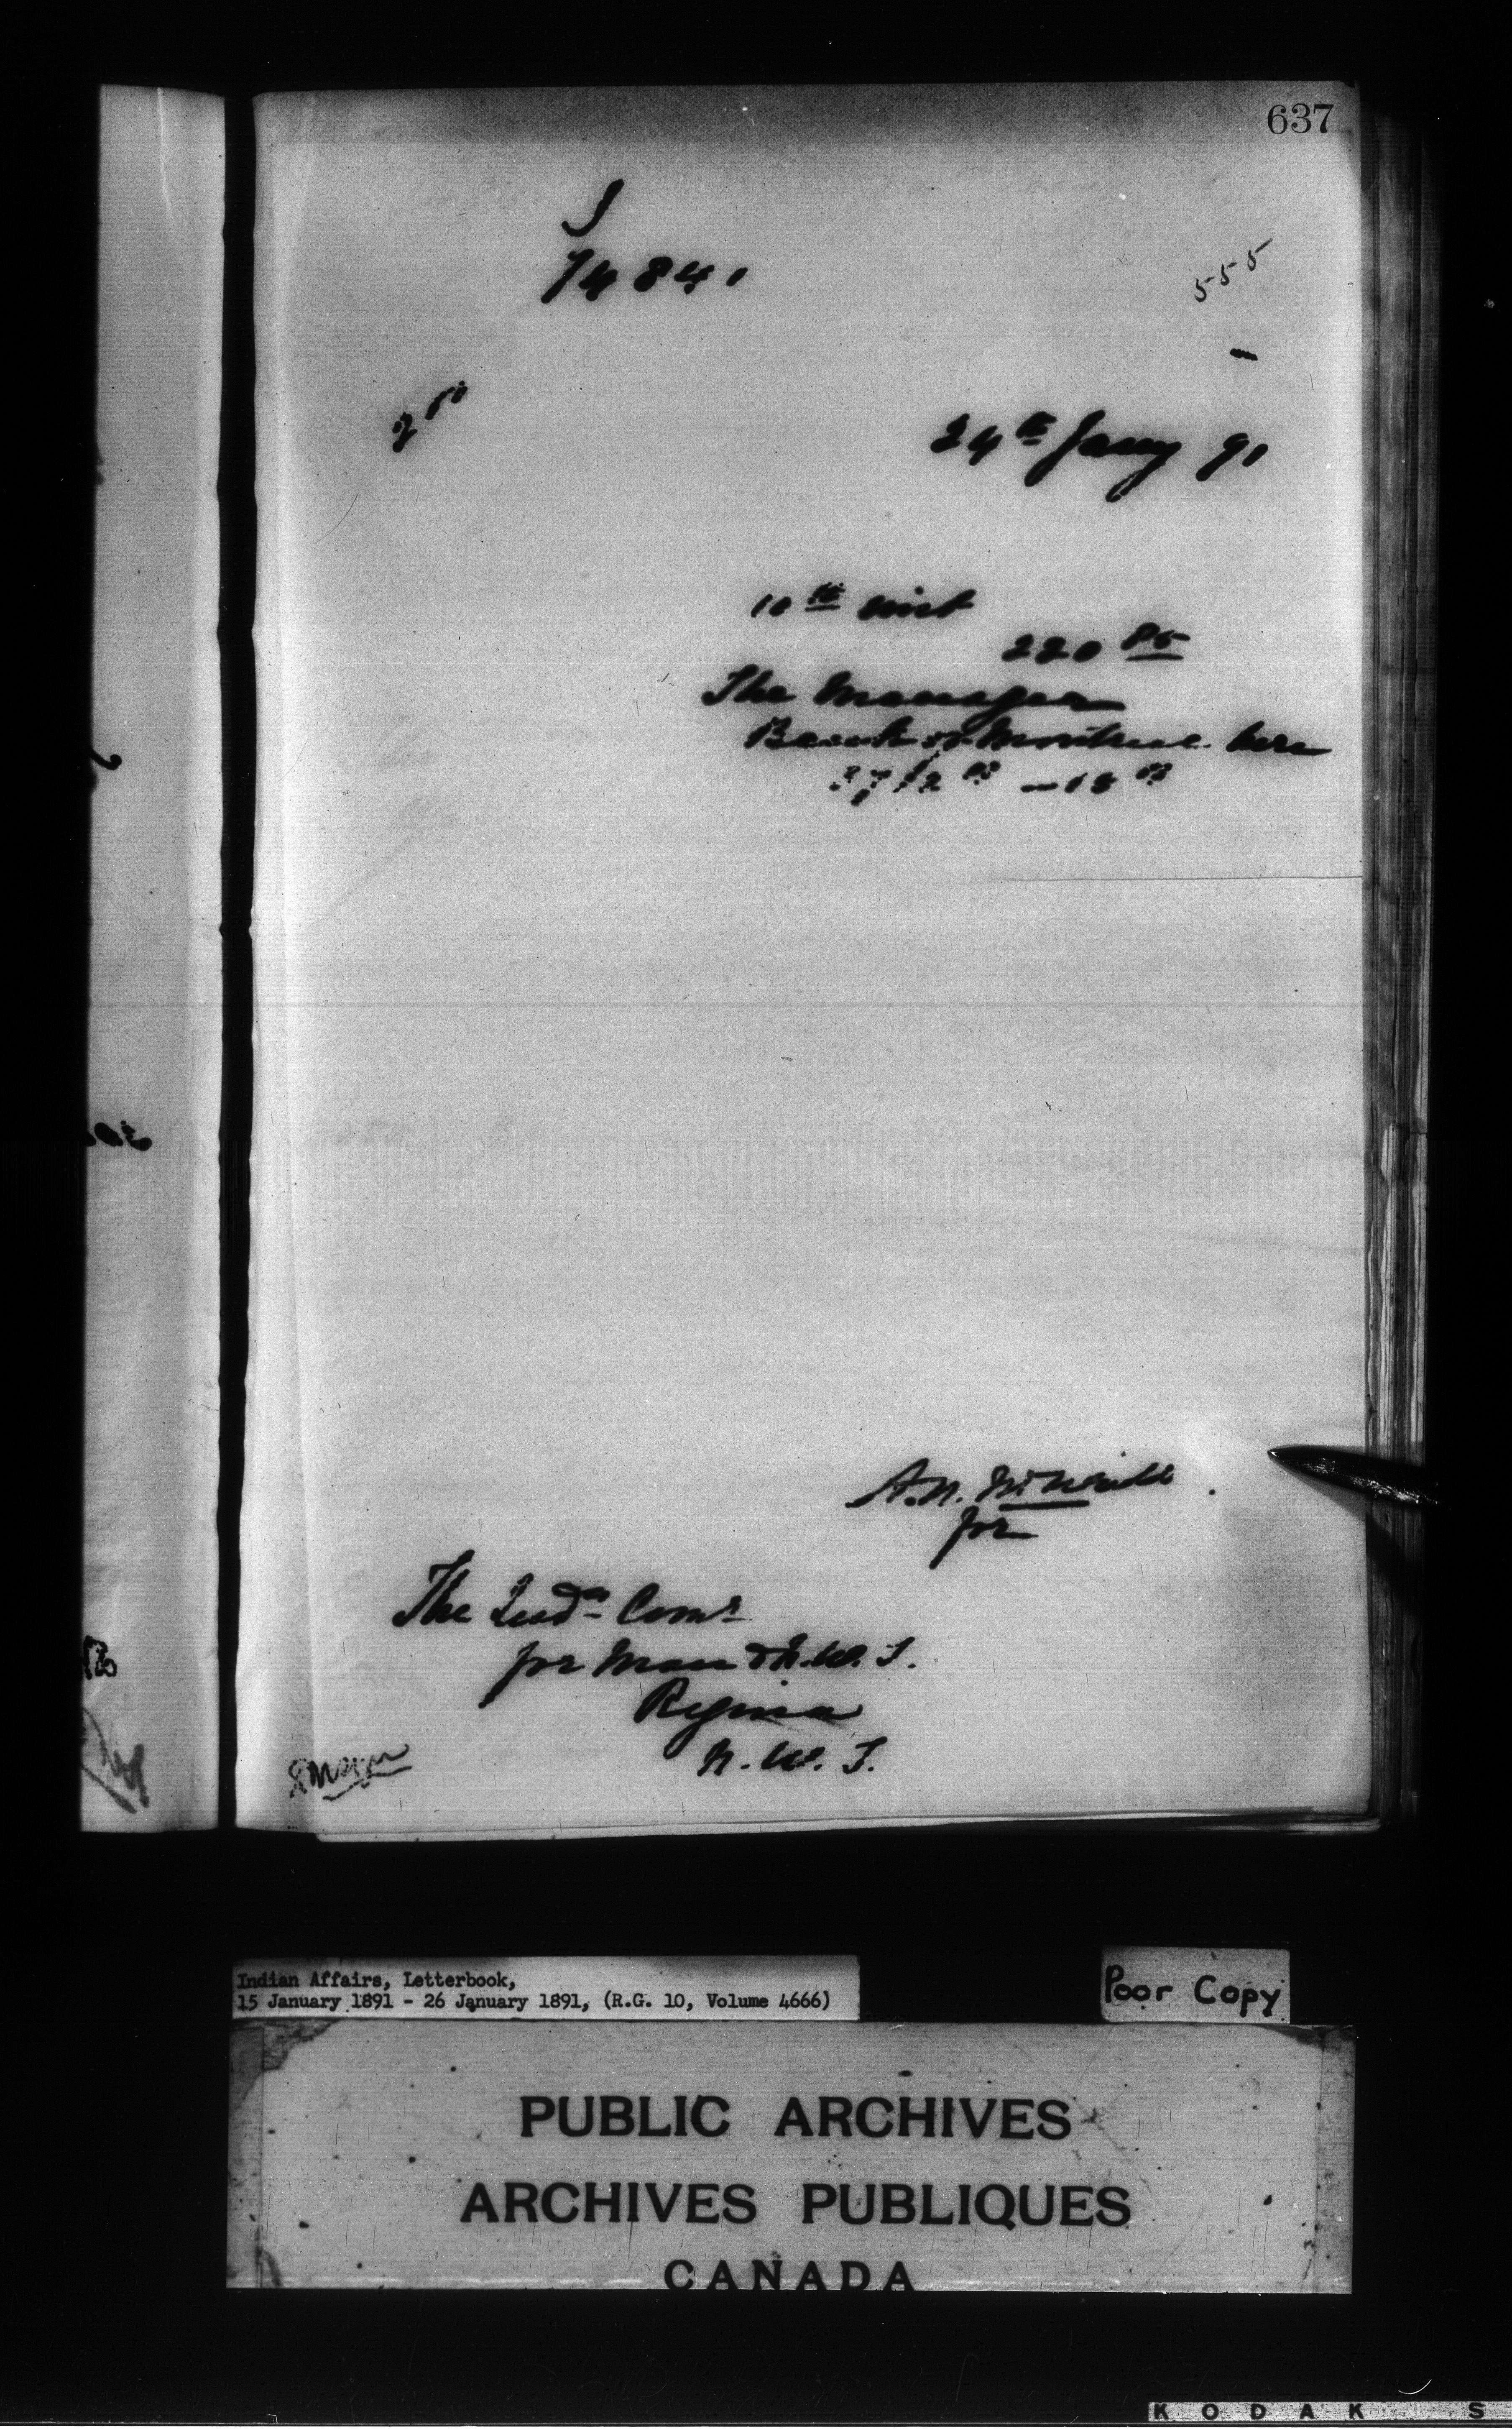 637
J
74841
555
24th Jany 91
10th inst
220 85
The Manager
Bank of Montreal here
A.N. McNeill
for
The Indn Comr
for Man & N.W.T.
Regina
N.W.T.
Indian Affairs, Letterbook,
15 January 1891 - 26 January 1891, (R.G. 10, Volume 4666)
Poor Copy
PUBLIC ARCHIVES
ARCHIVES PUBLIQUES
CANADA
KODAK S